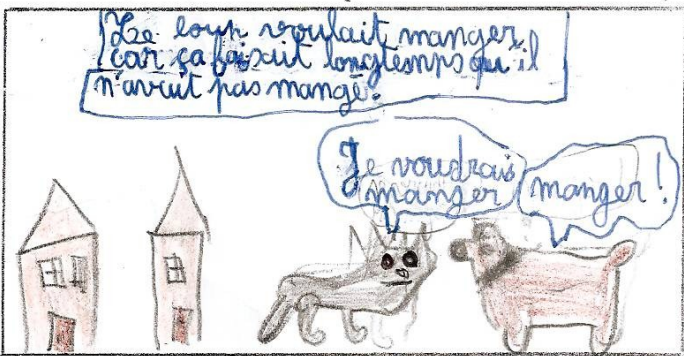 Le loup voulait manger
car ça faisait longtemps qu'il
n'avait pas mangé.
Je voudrais
manger
manger!